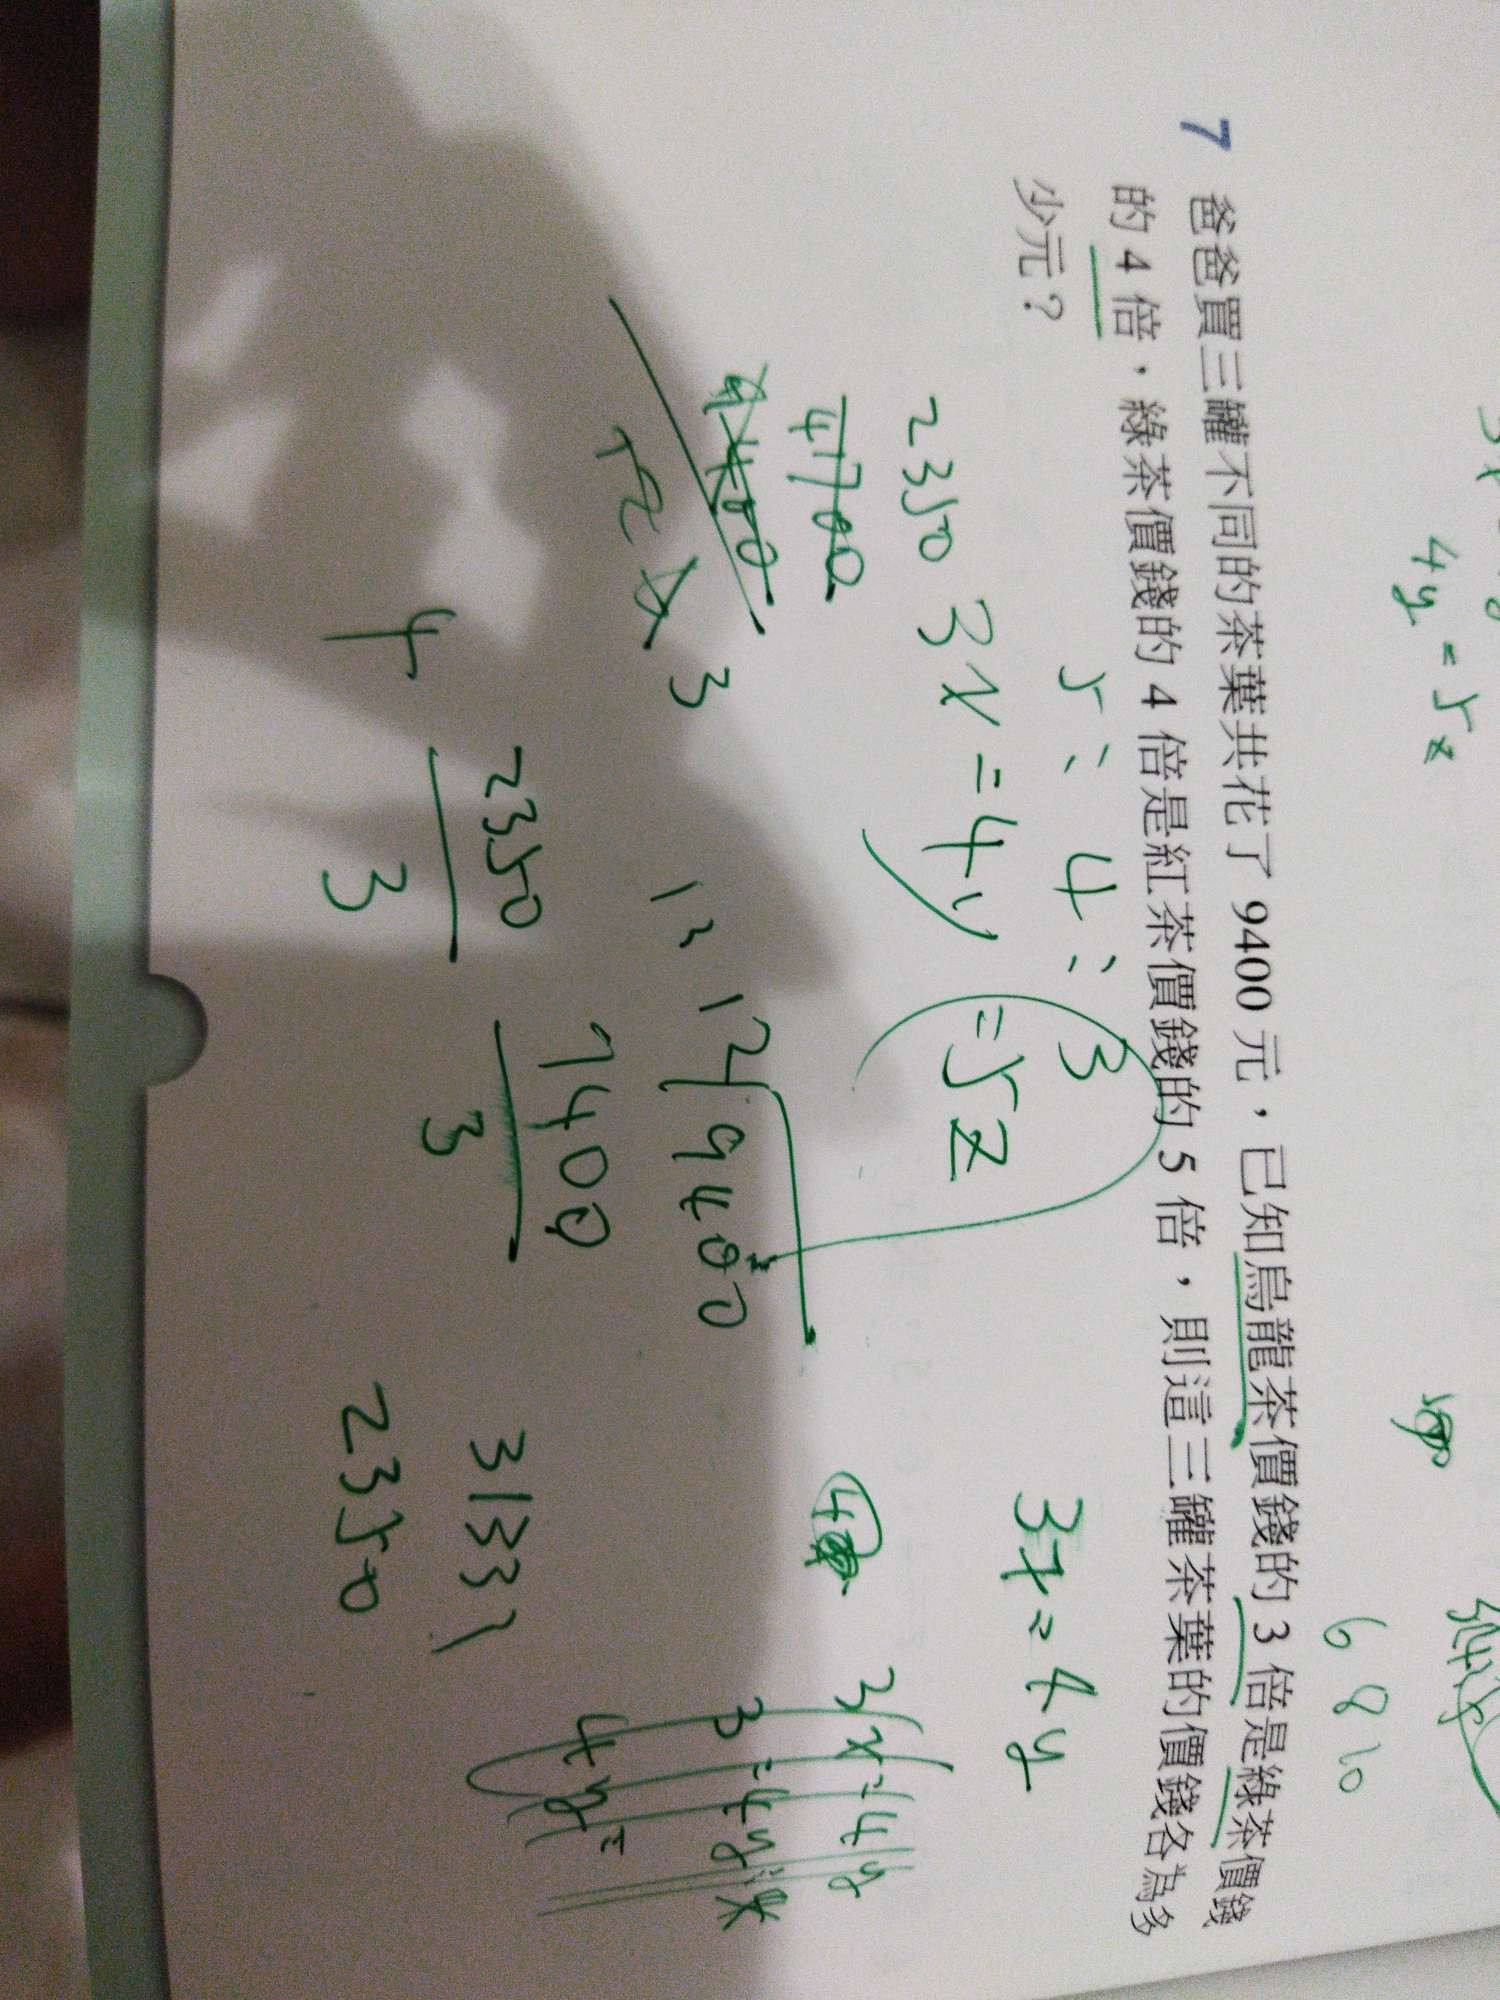 4y = 5z
6 8 10
7 爸爸買三罐不同的茶葉共花了 9400 元，已知烏龍茶價錢的 3 倍是綠茶價錢
的 4 倍，綠茶價錢的 4 倍是紅茶價錢的 5 倍，則這三罐茶葉的價錢各為多
少元？
5 : 4 : 3
3x = 4y
2350 3x = 4y = 5z
4700
9400
3x = 4y
3
12 9400
3 = 4y
4y =
2350
3
9400
3
4
3133
2350